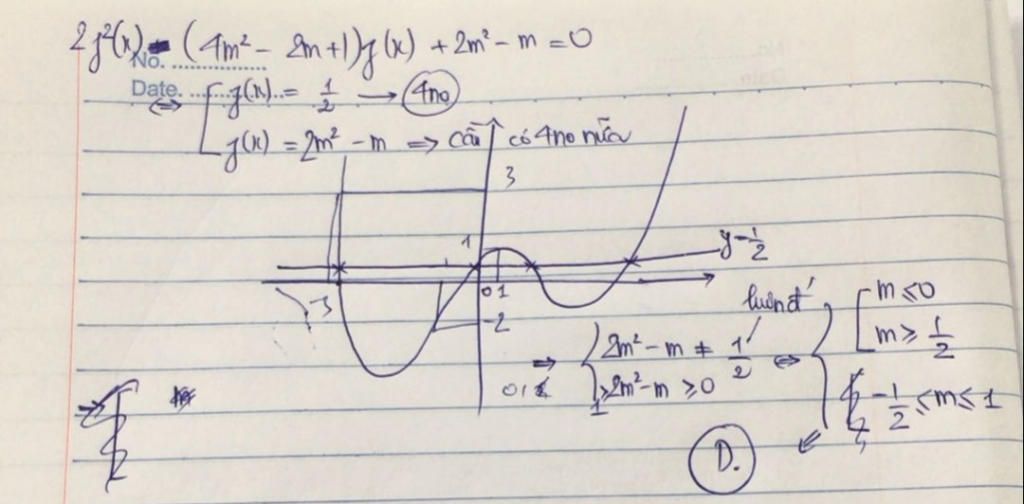 2f²(x) - (4m² - 2m + 1)f(x) + 2m² - m = 0
No. ..............
Date. ..............
⇔ [ f(x) = 1/2 → 4no
f(x) = 2m² - m ⇒ cần có 4no nữa
3
1
y = 1/2
0 1
-3
-2
⇒ { 2m² - m ≠ 1/2
1 ≥ 2m² - m ≥ 0
luôn đ'
⇔ { [ m ≤ 0
m ≥ 1/2
-1/2 ≤ m ≤ 1
D.